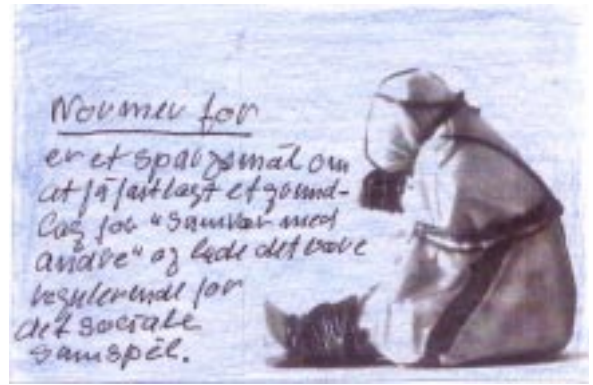 Normer for
er et spørgsmål om
at få fastlagt et grund-
lag for "samvær med
andre" og lade det være
regulerende for
det sociale
samspil.